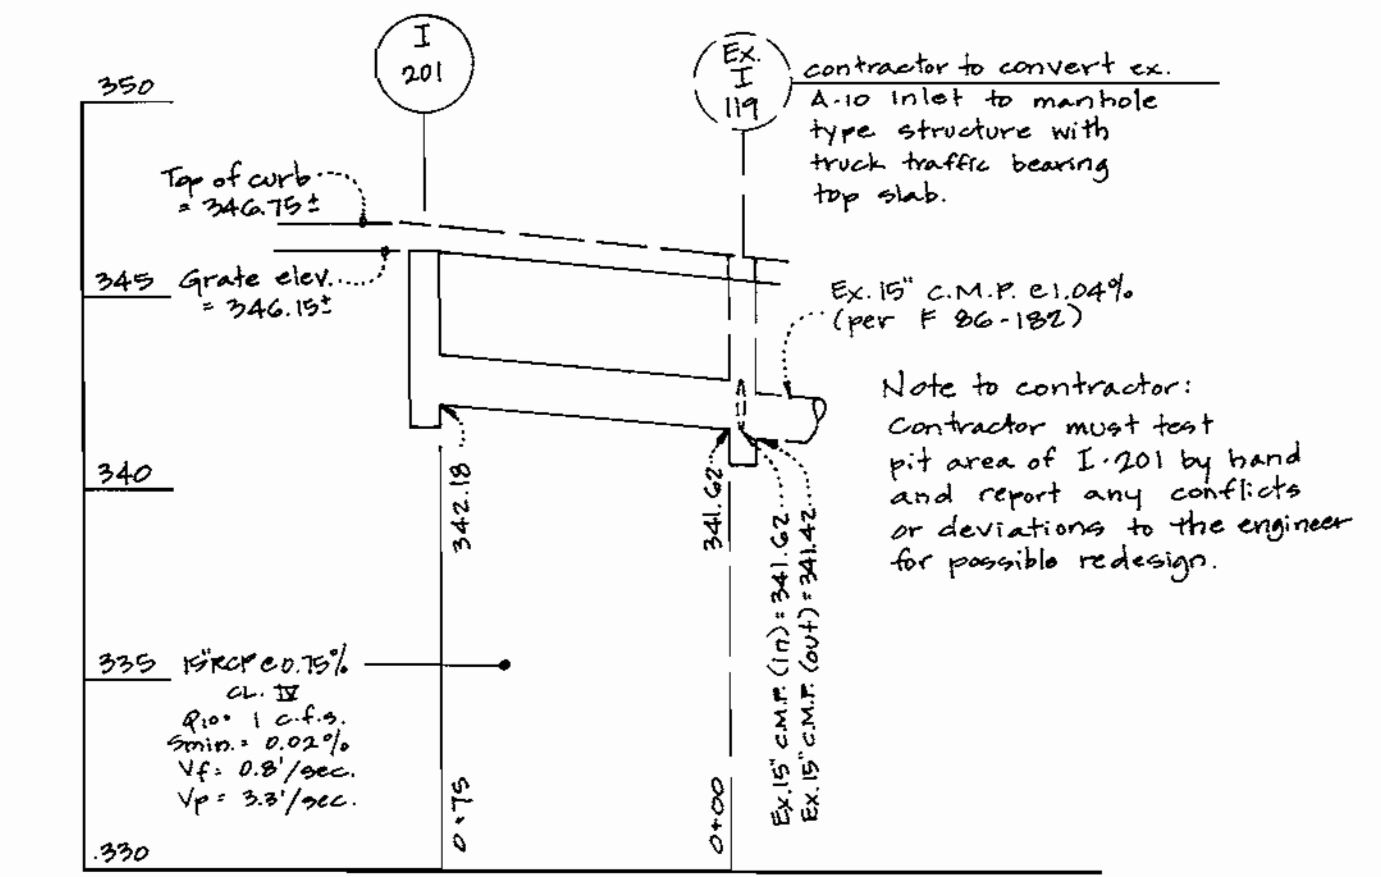 I
201
Ex.
I
119
contractor to convert ex.
A-10 Inlet to manhole
type structure with
truck traffic bearing
top slab.
350
Top of curb
= 346.75±
345
Grate elev.
= 346.15±
Ex. 15" C.M.P. @ 1.04%
(per F 86-182)
Note to contractor:
Contractor must test
pit area of I-201 by hand
and report any conflicts
or deviations to the engineer
for possible redesign.
340
342.18
341.62
Ex. 15" C.M.P. (in) = 341.62
Ex. 15" C.M.P. (out) = 341.42
335
15" RCP @ 0.75%
CL. IV
Q10= 1 c.f.s.
Smin.= 0.02%
Vf= 0.8'/sec.
Vp= 3.3'/sec.
0+75
0+00
.330